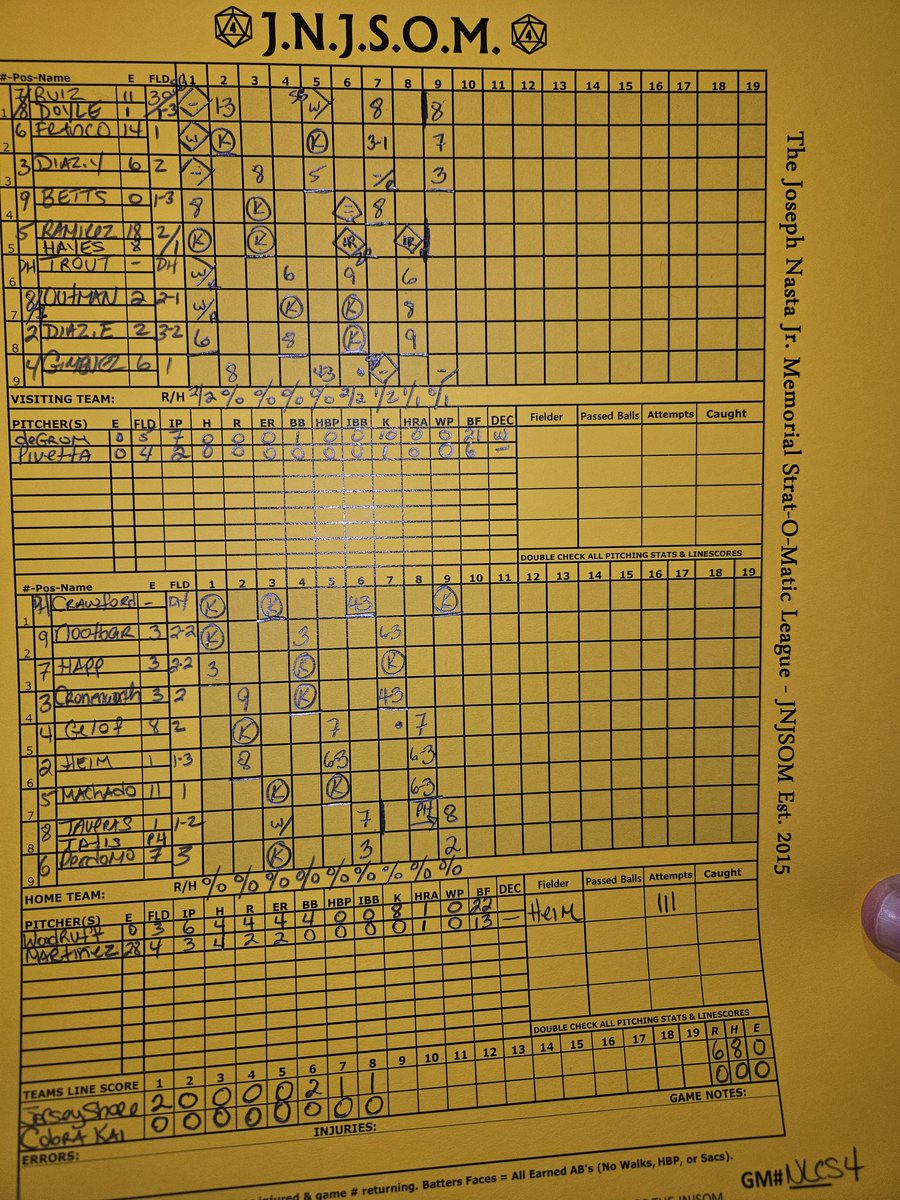 J.N.J.S.O.M.
#-Pos-Name E FLD 1 2 3 4 5 6 7 8 9 10 11 12 13 14 15 16 17 18 19
7/ RUIZ 11 1-3 W 8 8
8 DOYLE 1
1
6 FRANCO 14 1 W K K 3-1 7
2
3 DIAZ.Y 6 2 8 5 3
3
9 BETTS 0 1-3 8 K 8
4
5 RAMIREZ 18 2/ K K HR HR
HAYES 8 /1
5
DH TROUT - DH W/ 6 9 6
6
8/7 OUTMAN 2 2-1 W/ K K 8
7
2 DIAZ.E 2 3-2 6 8 K 9
8
4 GIMENEZ 6 1 8 43
9
VISITING TEAM: R/H 2/2 0/0 0/0 0/0 0/0 2/2 1/2 1/1 0/1
PITCHER(S) E FLD IP H R ER BB HBP IBB K HRA WP BF DEC Fielder Passed Balls Attempts Caught
deGROM 0 5 7 0 0 0 1 0 0 10 0 0 21 W
PIVETTA 0 4 2 0 0 0 0 0 0 1 0 0 6 -
DOUBLE CHECK ALL PITCHING STATS & LINESCORES
#-Pos-Name E FLD 1 2 3 4 5 6 7 8 9 10 11 12 13 14 15 16 17 18 19
DH CRAWFORD - DH K K 43 K
1
9 NOOTBAR 3 2-2 K 3 63
2
7 HAPP 3 2-2 3 K K
3
3 CRONENWORTH 3 2 9 K 43
4
4 Gelof 8 2 K 7 7
5
2 HEIM 1 1-3 8 63 63
6
5 MACHADO 11 1 K K 63
7
8 TAVERAS 1 1-2 W/ 7 PH 8
TATIS PH
8
6 PERDOMO 7 3 K 3 2
9
HOME TEAM: R/H 0/0 0/0 0/0 0/0 0/0 0/0 0/0 0/0 0/0
PITCHER(S) E FLD IP H R ER BB HBP IBB K HRA WP BF DEC Fielder Passed Balls Attempts Caught
WOODRUFF 0 3 6 4 4 4 4 0 0 8 1 0 22 Heim III
MARTINEZ 28 4 3 4 2 2 0 0 0 0 1 0 13 -
DOUBLE CHECK ALL PITCHING STATS & LINESCORES
TEAMS LINE SCORE 1 2 3 4 5 6 7 8 9 10 11 12 13 14 15 16 17 18 19 R H E
Jersey Shore 2 0 0 0 0 2 1 1 6 8 0
COBRA KAI 0 0 0 0 0 0 0 0 0 0 0
ERRORS: INJURIES: GAME NOTES:
injured & game # returning. Batters Faces = All Earned AB's (No Walks, HBP, or Sacs).
GM# NLCS4
The Joseph Nasta Jr. Memorial Strat-O-Matic League - JNJSOM Est. 2015